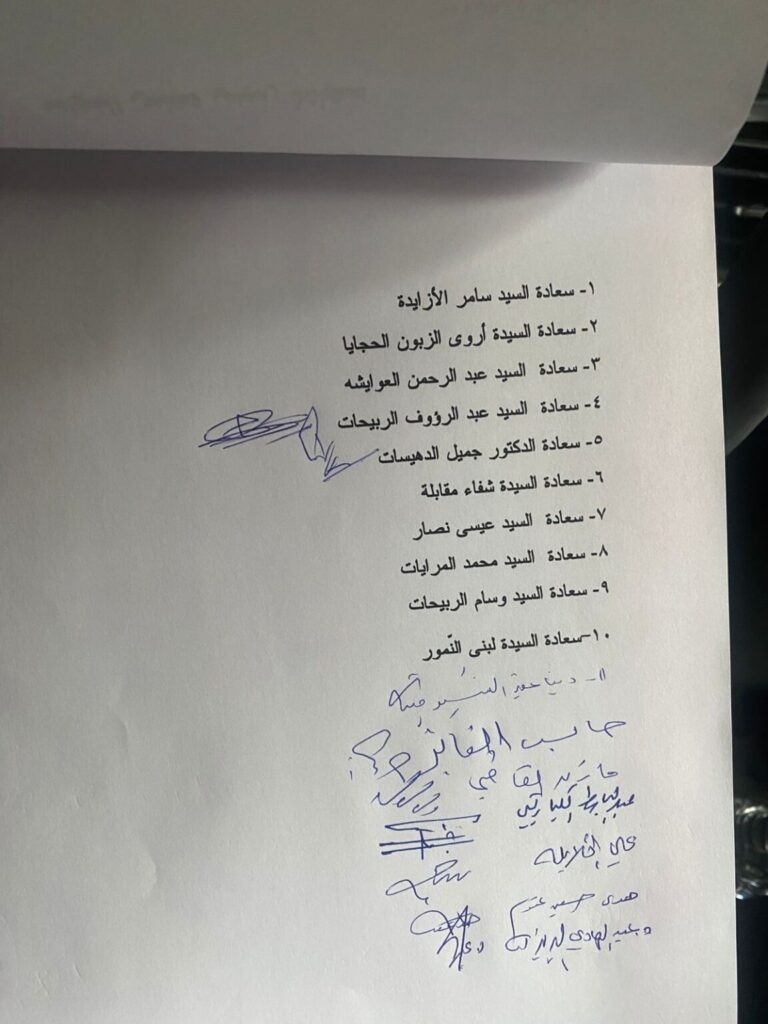 ١- سعادة السيد سامر الأزايدة
٢- سعادة السيدة أروى الزبون الحجايا
٣- سعادة السيد عبد الرحمن العوايشه
٤- سعادة السيد عبد الرؤوف الربيحات
٥- سعادة الدكتور جميل الدهيسات
٦- سعادة السيدة شفاء مقابلة
٧- سعادة السيد عيسى نصار
٨- سعادة السيد محمد المرايات
٩- سعادة السيد وسام الربيحات
١٠-سعادة السيدة لبنى النّمور
١١- دينا
الفايز
مازن القاضي
عبدالباسط الكباريتي
علي الخلايله
هدى حسين عتوم
عبدالهادي